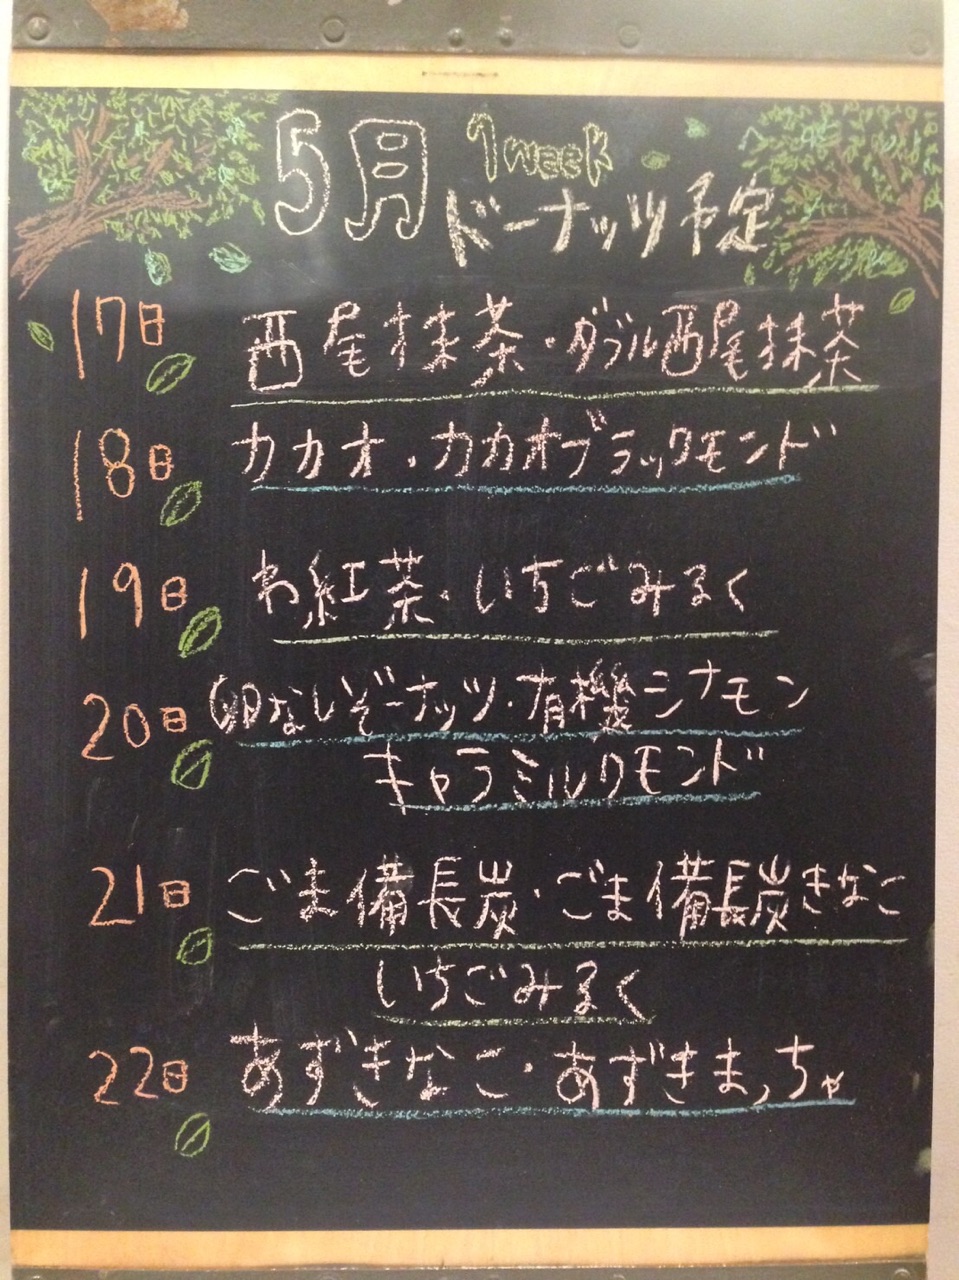 5月 1week
ドーナッツ予定
17日 西尾抹茶・ダブル西尾抹茶
18日 カカオ・カカオブラックモンド
19日 わ紅茶・いちごみるく
20日 卵なしぞーナッツ・有機シナモン
キャラミルクモンド
21日 ごま備長炭・ごま備長炭きなこ
いちごみるく
22日 あずきなこ・あずきまっちゃ